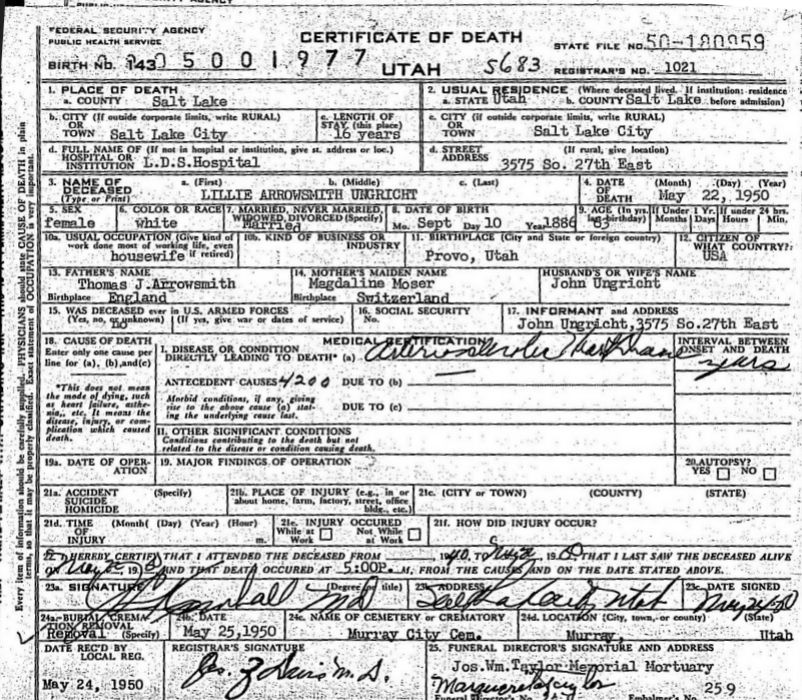 FEDERAL SECURITY AGENCY
PUBLIC HEALTH SERVICE
CERTIFICATE OF DEATH
STATE FILE NO. 50-180959
BIRTH NO. 143 05001977
UTAH
5683
REGISTRAR'S NO. 1021
1. PLACE OF DEATH
a. COUNTY Salt Lake
2. USUAL RESIDENCE (Where deceased lived. If institution: residence before admission)
a. STATE Utah b. COUNTY Salt Lake
b. CITY (If outside corporate limits, write RURAL) OR TOWN Salt Lake City
c. LENGTH OF STAY (this place) 16 years
c. CITY (If outside corporate limits, write RURAL) OR TOWN Salt Lake City
d. FULL NAME OF (If not in hospital or institution, give st. address or loc.) HOSPITAL OR INSTITUTION L.D.S.Hospital
d. STREET ADDRESS (If rural, give location) 3575 So. 27th East
3. NAME OF DECEASED (Type or Print) a. (First) b. (Middle) c. (Last)
LILLIE ARROWSMITH UNGRICHT
4. DATE OF DEATH (Month) (Day) (Year)
May 22, 1950
5. SEX female
6. COLOR OR RACE white
7. MARRIED, NEVER MARRIED, WIDOWED, DIVORCED (Specify) Married
8. DATE OF BIRTH Mo. Sept Day 10 Year 1886
9. AGE (In yrs. last birthday) 63
If Under 1 Yr. Months Days
If under 24 hrs. Hours Min.
10a. USUAL OCCUPATION (Give kind of work done most of working life, even if retired) housewife
10b. KIND OF BUSINESS OR INDUSTRY
11. BIRTHPLACE (City and State or foreign country) Provo, Utah
12. CITIZEN OF WHAT COUNTRY? USA
13. FATHER'S NAME Thomas J.Arrowsmith
Birthplace England
14. MOTHER'S MAIDEN NAME Magdaline Moser
Birthplace Switzerland
HUSBAND'S OR WIFE'S NAME John Ungricht
15. WAS DECEASED ever in U.S. ARMED FORCES (Yes, no, or unknown) (If yes, give war or dates of service) no
16. SOCIAL SECURITY No.
17. INFORMANT and ADDRESS John Ungricht,3575 So.27th East
18. CAUSE OF DEATH
Enter only one cause per line for (a), (b), and (c)
MEDICAL CERTIFICATION
I. DISEASE OR CONDITION DIRECTLY LEADING TO DEATH* (a) Arteriosclerotic
INTERVAL BETWEEN ONSET AND DEATH
years
*This does not mean the mode of dying, such as heart failure, asthenia, etc. It means the disease, injury, or complication which caused death.
ANTECEDENT CAUSES 4200 DUE TO (b)
Morbid conditions, if any, giving rise to the above cause (a) stating the underlying cause last.
DUE TO (c)
II. OTHER SIGNIFICANT CONDITIONS
Conditions contributing to the death but not related to the disease or condition causing death.
19a. DATE OF OPERATION
19. MAJOR FINDINGS OF OPERATION
20. AUTOPSY? YES NO
21a. ACCIDENT SUICIDE HOMICIDE (Specify)
21b. PLACE OF INJURY (e.g., in or about home, farm, factory, street, office bldg., etc.)
21c. (CITY or TOWN) (COUNTY) (STATE)
21d. TIME OF INJURY (Month) (Day) (Year) (Hour) m.
21e. INJURY OCCURED While at Work Not While at Work
21f. HOW DID INJURY OCCUR?
HEREBY CERTIFY THAT I ATTENDED THE DECEASED FROM 1940, TO 19 THAT I LAST SAW THE DECEASED ALIVE
ON 19 AND THAT DEATH OCCURED AT 5:00P. M, FROM THE CAUSES AND ON THE DATE STATED ABOVE.
23a. SIGNATURE (Degree or title) MD
23b. ADDRESS Salt Lake City Utah
23c. DATE SIGNED
24a. BURIAL, CREMATION, REMOVAL (Specify) Removal
24b. DATE May 25,1950
24c. NAME OF CEMETERY or CREMATORY Murray City Cem.
24d. LOCATION (City, town, or county) (State) Murray, Utah
DATE REC'D BY LOCAL REG. May 24, 1950
REGISTRAR'S SIGNATURE
25. FUNERAL DIRECTOR'S SIGNATURE AND ADDRESS
Jos.Wm.Taylor Memorial Mortuary
259
Every item of information should be carefully supplied. PHYSICIANS should state CAUSE OF DEATH in plain
terms, so that it may be properly classified. Exact statement of OCCUPATION is very important.